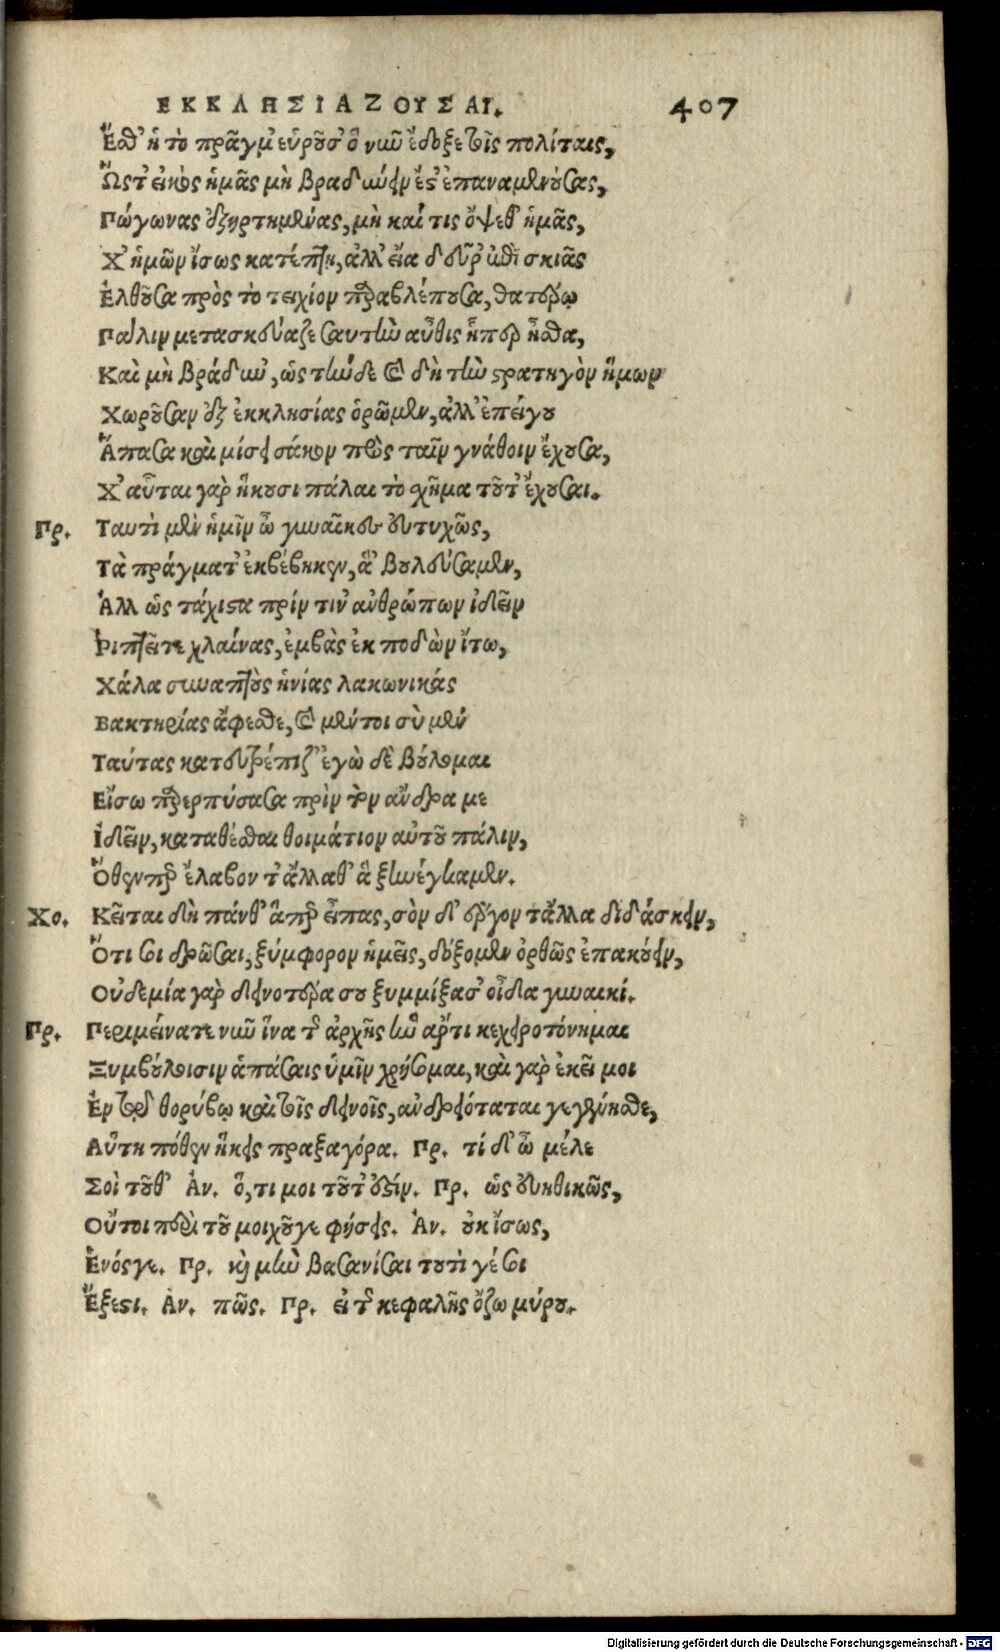 ΕΚΚΛΗΣΙΑΖΟΥΣΑΙ. 407
Ἔσθ' ἡ τὸ πρᾶγμ' εὑροῦσ' ὃ νῦν ἔδοξε τοῖς πολίταις,
Ὥστ' εἰκὸς ἡμᾶς μὴ βραδύνειν ἔστ' ἐπαναμενούσας,
Πώγωνας ἐξηρτημένας, μὴ καί τις ὄψεθ' ἡμᾶς,
Χ' ἡμῶν ἴσως κατείπῃ, ἀλλ' εἶα δεῦρ' ἐπὶ σκιᾶς
Ἐλθοῦσα πρὸς τὸ τειχίον παραβλέπουσα, θατέρῳ
Πάλιν μετασκεύαζε σαυτὴν αὖθις ἥπερ ἦσθα,
Καὶ μὴ βράδυν', ὡς τήνδε καὶ δὴ τὴν στρατηγὸν ἥμων
Χωροῦσαν ἐξ ἐκκλησίας ὁρῶμεν, ἀλλ' ἐπείγου
Ἅπασα καὶ μίσει σάκον πρὸς ταῖν γνάθοιν ἔχουσα,
Χ' αὗται γὰρ ἥκουσι πάλαι τὸ σχῆμα τοῦτ' ἔχουσαι.
Πρ. Ταυτὶ μὲν ἡμῖν ὦ γυναῖκες εὐτυχῶς,
Τὰ πράγματ' ἐκβέβηκεν, ἃ βουλεύσαμεν,
Ἀλλ' ὡς τάχιστα πρίν τιν' ἀνθρώπων ἰδεῖν
Ῥιπτεῖτε χλαίνας, ἐμβὰς ἐκ ποδὼν ἴτω,
Χάλα συναπτοὺς ἡνίας λακωνικάς
Βακτηρίας ἄφεσθε, καὶ μέντοι σὺ μέν
Ταύτας κατευτρέπιζ' ἐγὼ δὲ βούλομαι
Εἴσω παρερπύσασα πρὶν τὸν ἄνδρα με
Ἰδεῖν, καταθέσθαι θοἰμάτιον αὐτοῦ πάλιν,
Ὅθενπερ ἔλαβον τ' ἄλλαθ' ἃ ξηνέγκαμεν.
Χο. Κεῖται δὴ πάνθ' ἅπερ εἶπας, σὸν δ' ἔργον τἄλλα διδάσκειν,
Ὅτι σοι δρῶσαι, ξύμφορον ἡμεῖς, δόξομεν ὀρθῶς ἐπακούειν,
Οὐδεμία γὰρ δεινοτέρα σου ξυμμίξασ' οἶδα γυναικί.
Πρ. Περιμείνατε νῦν ἵνα τῆς ἀρχῆς ἣν ἄρτι κεχειροτόνημαι
Ξυμβούλοισιν ἁπάσαις ὑμῖν χρήσομαι, καὶ γὰρ ἐκεῖ μοι
Ἐν τῷ θορύβῳ καὶ τοῖς δεινοῖς, ἀνδρειόταται γεγένησθε,
Αὕτη πόθεν ἥκεις πραξαγόρα. Πρ. τί δ' ὦ μέλε
Σοὶ τοῦθ' Ἀν. ὅ, τι μοι τοῦτ' ἐστίν. Πρ. ὡς εὐηθικῶς,
Οὔτοι περὶ τοῦ μοιχοῦγε φήσεις. Ἀν. οὐκ ἴσως,
Ἑνόςγε. Πρ. καὶ μὴν βασανίσαι τουτὶ γέ σοι
Ἔξεστι. Ἀν. πῶς. Πρ. εἰ τῆς κεφαλῆς ὄζω μύρου.
Digitalisierung gefördert durch die Deutsche Forschungsgemeinschaft - DFG